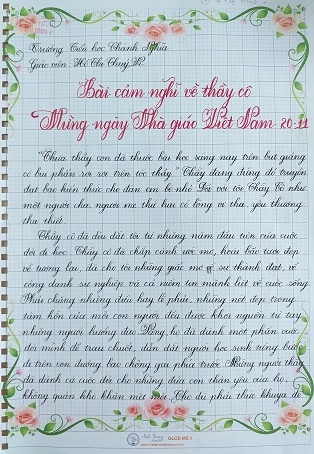 Trường Tiểu học Chanh Nghĩa
Giáo viên: Hồ Thị Thuý
Bài cảm nghĩ về thầy cô
Mừng ngày Nhà giáo Việt Nam 20-11
"Thưa thầy con đã thuộc bài học sang nay trên bục giảng
có bụi phấn rơi rơi trên tóc thầy" Thầy đang đứng đó truyền
đạt bao kiến thức cho đàn em bé nhỏ. Đối với tôi Thầy Cô như
một người cha, người mẹ thứ hai có lòng vị tha, yêu thương
tha thiết.
Thầy cô đã dìu dắt tôi từ những năm đầu tiên của cuộc
đời đi học. Thầy cô đã chắp cánh ước mơ, hoài bão tươi đẹp
về tương lai, đã cho tôi những giấc mơ về sự thành đạt, về
công danh sự nghiệp và cả niềm tin mãnh liệt về cuộc sống
Phải chăng những điều hay lẽ phải, những nét đẹp trong
tâm hồn của mỗi con người đều được khơi nguồn từ tay
những người hướng đạo. Vâng, họ đã dành một phần cuộc
đời mình để trau chuốt, dẫn dắt người học sinh vững bước
đi trên con đường bao chông gai phía trước. Những người thầy
đã dành cả cuộc đời cho những đứa con thân yêu của họ,
không quản khó khăn mệt mỏi. Cho dù phải thức khuya để
Anh Dương
GLCD MS.1